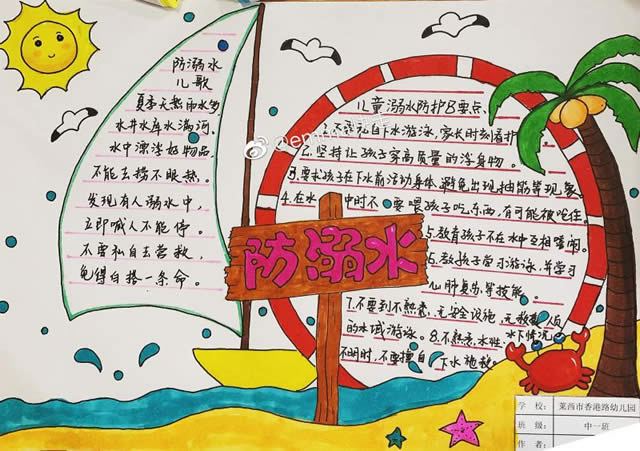 防溺水
儿歌
夏季天热雨水多
水井水库水满河。
水中漂浮好物品,
不能去捞不眼热。
发现有人溺水中,
立即喊人不能停。
不要私自去营救,
免得白搭一条命。
防溺水
儿童溺水防护8要点、
自下水游泳,家长时刻看护
2.坚持让孩子穿高质量的浮身物。
3.要求孩子在下水前活动身体,避免出现抽筋等现象。
4.在水中时不要喂孩子吃东西,有可能被呛住。
5.教育孩子不在水中互相嘻闹。
6.教孩子学习游泳,并学习
心肺复苏等技能。
7.不要到不熟悉,无安全设施、无救援人员
的水域游泳。8.不熟悉水性 水下情况
不明时,不要擅自下水施救。
学 校: 莱西市香港路幼儿园
班 级: 中一班
作 者: